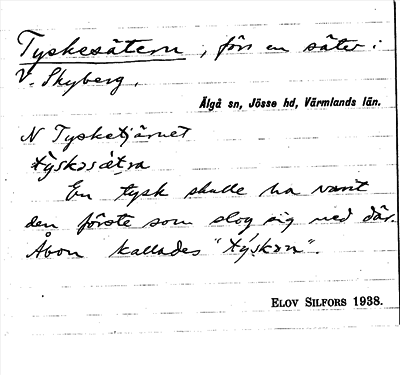 Tyskesätern, förs en säter i
V. Skyberg.
Älgå sn, Jösse hd, Värmlands län.
N Tysketjärnet
En tysk skulle ha varit
den förste som slog sig ned där.
Åbon kallades "
ELOV SILFORS 1938.